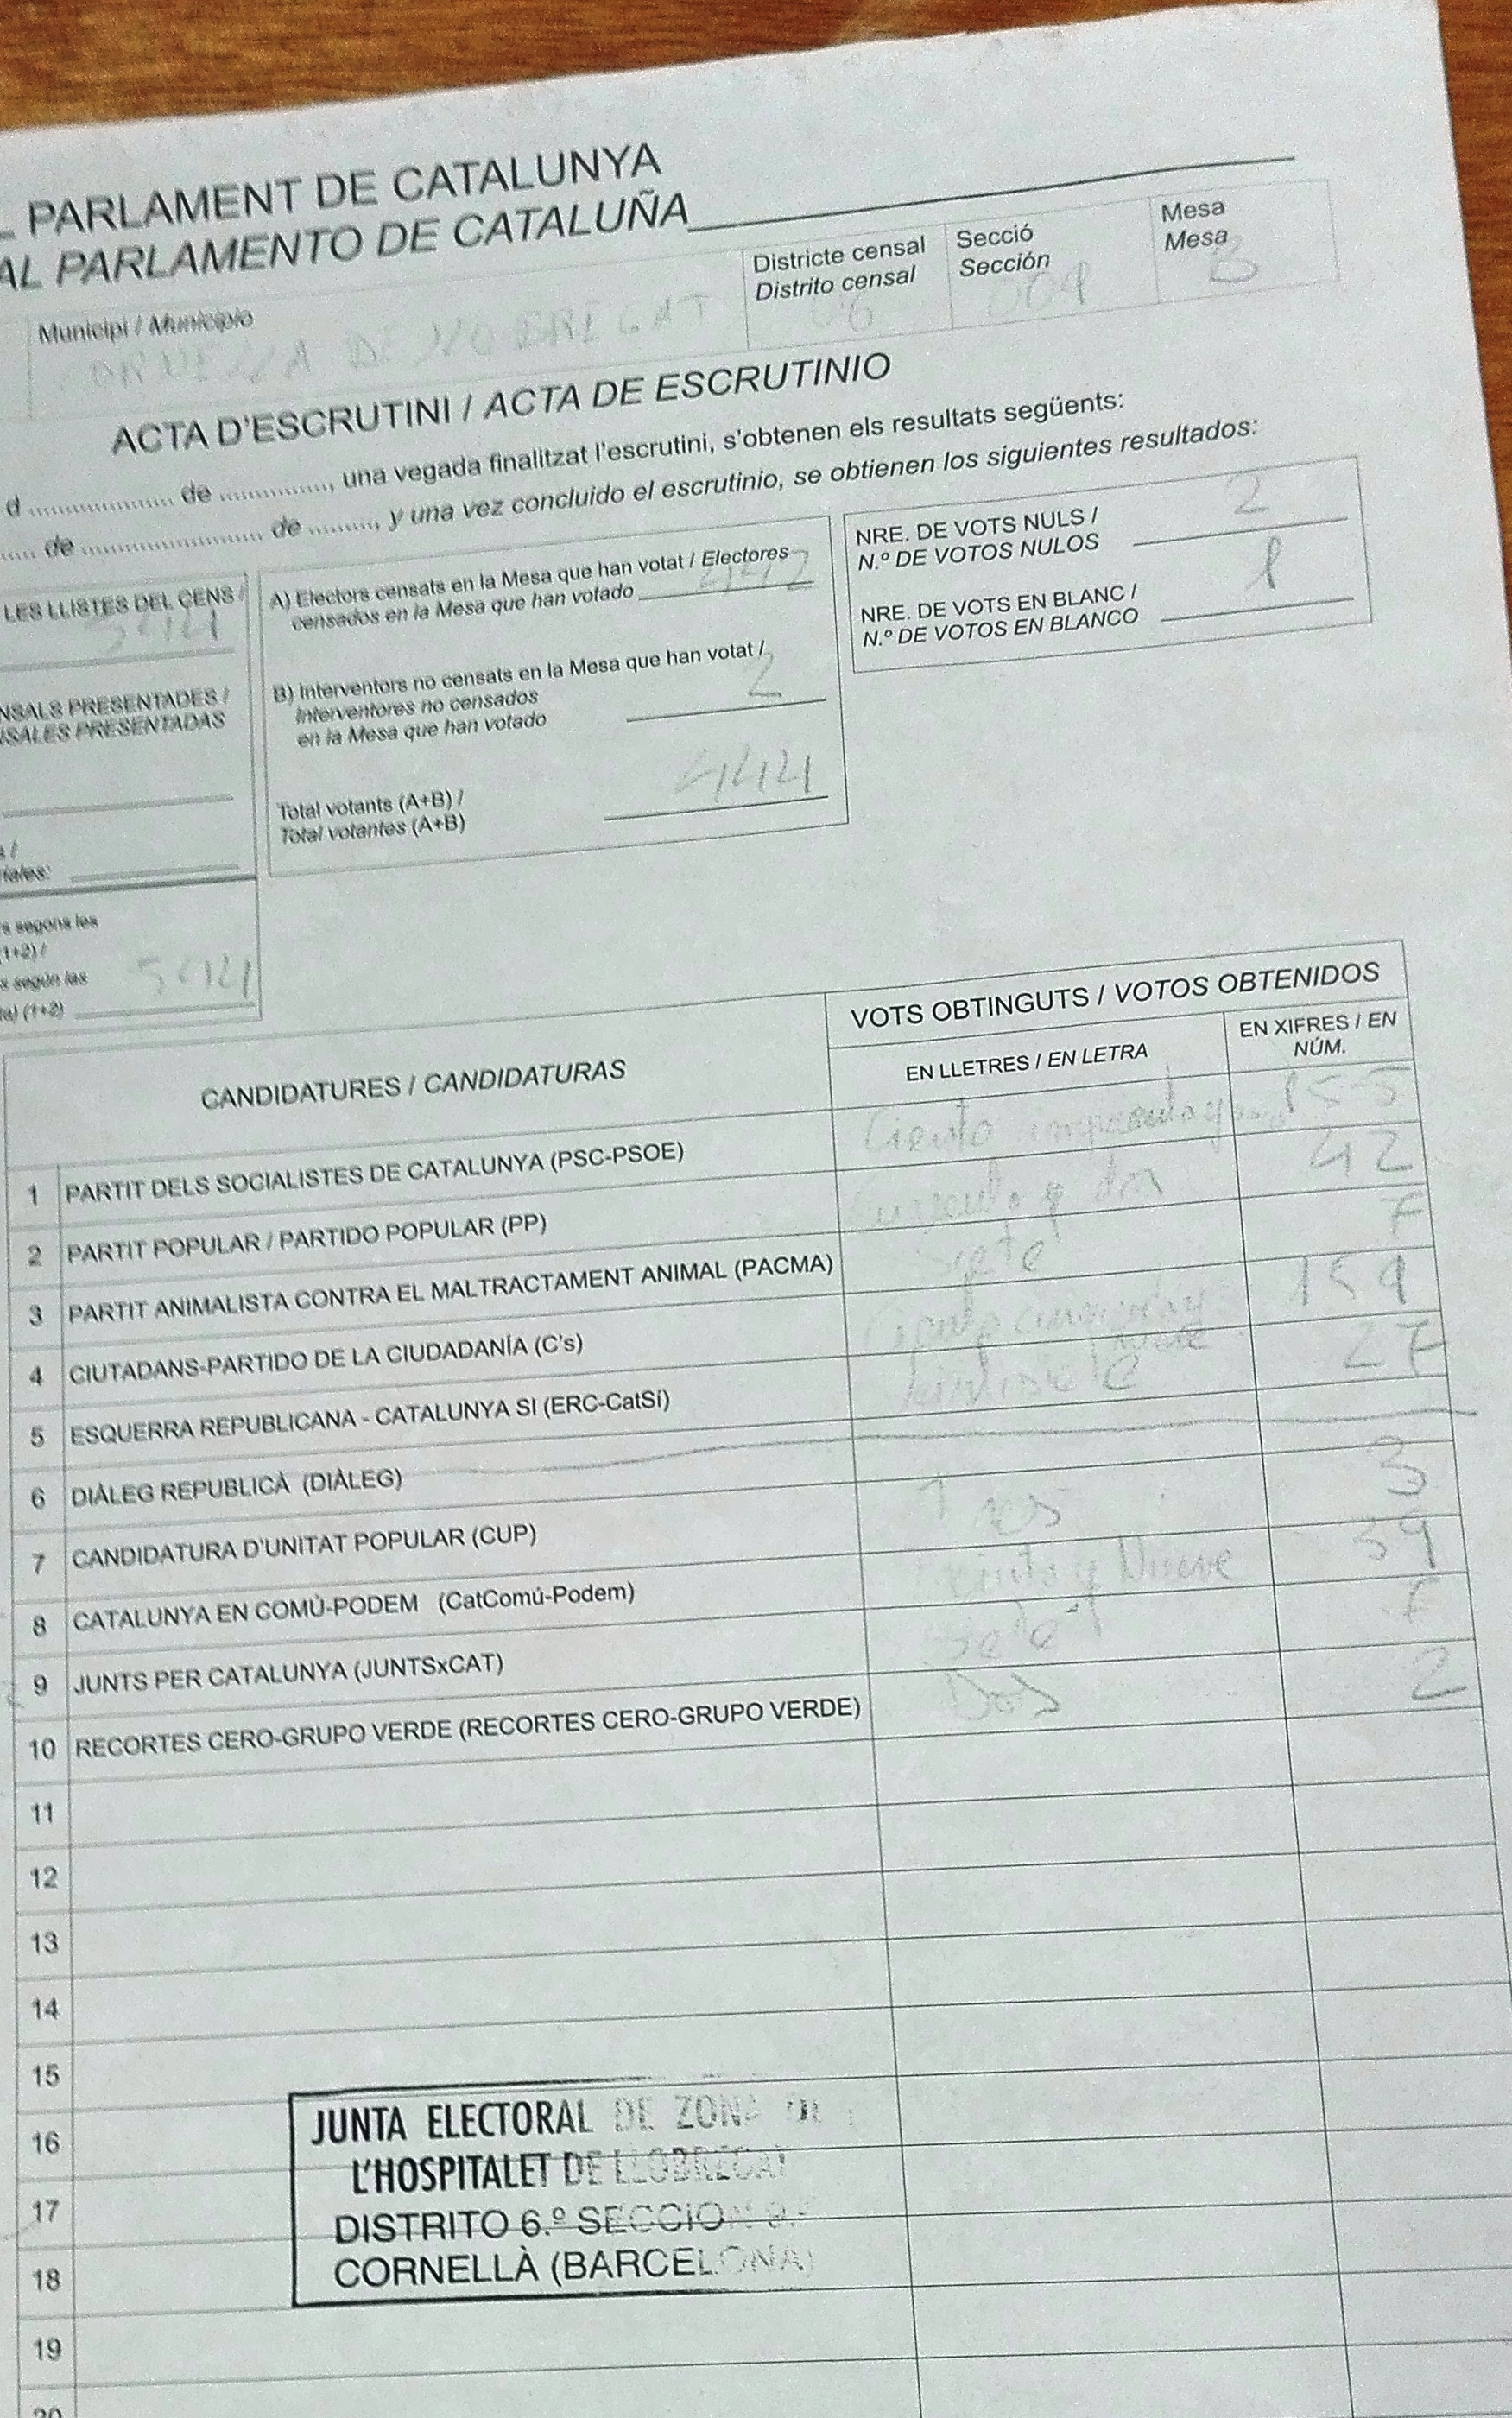 L PARLAMENT DE CATALUNYA
AL PARLAMENTO DE CATALUÑA
Municipi / Municipio
Districte censal
Distrito censal 06
Secció
Sección 009
Mesa
Mesa
ACTA D'ESCRUTINI / ACTA DE ESCRUTINIO
d .................... de ..............., una vegada finalitzat l'escrutini, s'obtenen els resultats següents:
..... de ......................... de ........., y una vez concluido el escrutinio, se obtienen los siguientes resultados:
LES LLISTES DEL CENS /
NSALS PRESENTADES /
NSALES PRESENTADAS
iales:
s segons les
(1+2) /
s según las
(1+2)
A) Electors censats en la Mesa que han votat / Electores
censados en la Mesa que han votado 442
B) Interventors no censats en la Mesa que han votat /
Interventores no censados
en la Mesa que han votado 2
Total votants (A+B) /
Total votantes (A+B) 444
NRE. DE VOTS NULS /
N.º DE VOTOS NULOS 2
NRE. DE VOTS EN BLANC /
N.º DE VOTOS EN BLANCO 1
CANDIDATURES / CANDIDATURAS
VOTS OBTINGUTS / VOTOS OBTENIDOS
EN LLETRES / EN LETRA
EN XIFRES / EN
NÚM.
1 PARTIT DELS SOCIALISTES DE CATALUNYA (PSC-PSOE) Ciento 155
2 PARTIT POPULAR / PARTIDO POPULAR (PP) y dos 42
3 PARTIT ANIMALISTA CONTRA EL MALTRACTAMENT ANIMAL (PACMA) siete 7
4 CIUTADANS-PARTIDO DE LA CIUDADANÍA (C's) 159
5 ESQUERRA REPUBLICANA - CATALUNYA SI (ERC-CatSí) 27
6 DIÀLEG REPUBLICÀ (DIÀLEG)
7 CANDIDATURA D'UNITAT POPULAR (CUP) Tres 3
8 CATALUNYA EN COMÚ-PODEM (CatComú-Podem) Treinta y Nueve 39
9 JUNTS PER CATALUNYA (JUNTSxCAT) 7
10 RECORTES CERO-GRUPO VERDE (RECORTES CERO-GRUPO VERDE) Dos 2
11
12
13
14
15
16
17
18
19
20
JUNTA ELECTORAL DE ZONA DE
L'HOSPITALET DE LLOBREGAT
DISTRITO 6.º SECCION 9.ª
CORNELLÀ (BARCELONA)